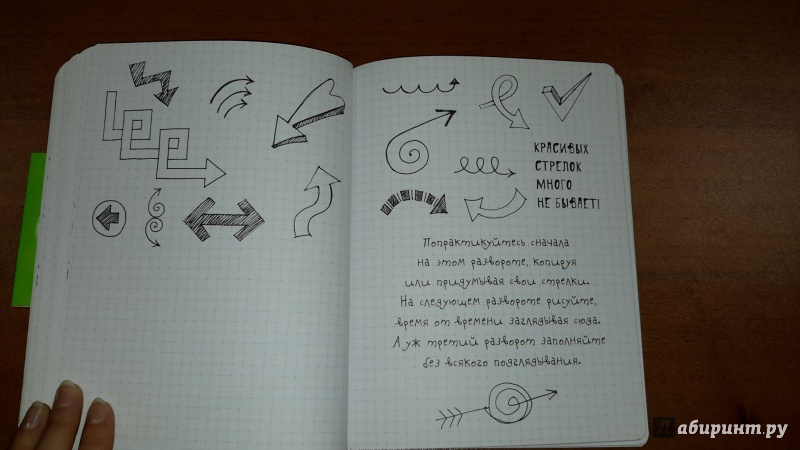 КРАСИВЫХ
СТРЕЛОК
МНОГО
НЕ БЫВАЕТ!
Попрактикуйтесь сначала
на этом развороте, копируя
или придумывая свои стрелки.
На следующем развороте рисуйте,
время от времени заглядывая сюда.
А уж третий разворот заполняйте
без всякого подглядывания.
Лабиринт.ру